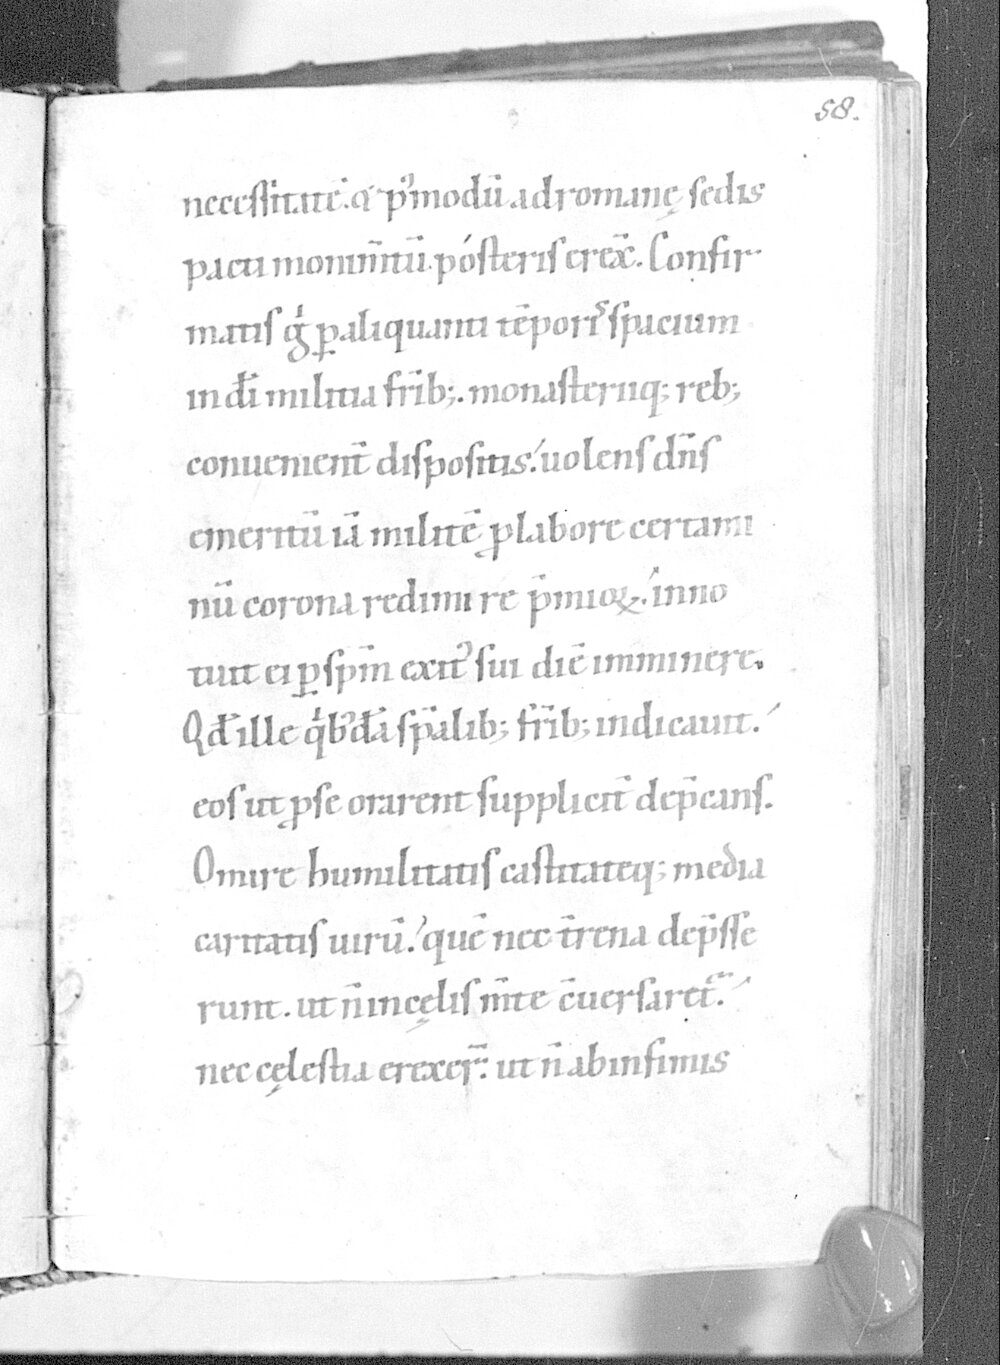 58.
necessitatē. & p̾modū ad romanę sedis
pacti monim̄tū. pósteris erex̄. Confir
matis g̾ ꝑ aliquanti tēporis spacium
in dī militia fr̄ib;. monasteriiq; reb;
conuenient̄ dispositis. uolens dn̄s
emeritū iā militē ꝓ labore certami
nū corona redimire p̄mioꝝ. inno
tuit ei ꝑ spm̄ exit᾽ sui diē imminere.
Qđ ille q̾b᾽dā sp̄alib; fr̄ib; indicauit.
eos ut ꝓ se orarent supplicit̄ dep̄cans.
O mire humilitatis castitateq; media
caritatis uirū. quē nec t̄rena dep̄sse
runt. ut n̄ in cęlis m̄te c̄uersaret᾽.
nec cęlestia erexer̄. ut n̄ ab infimis